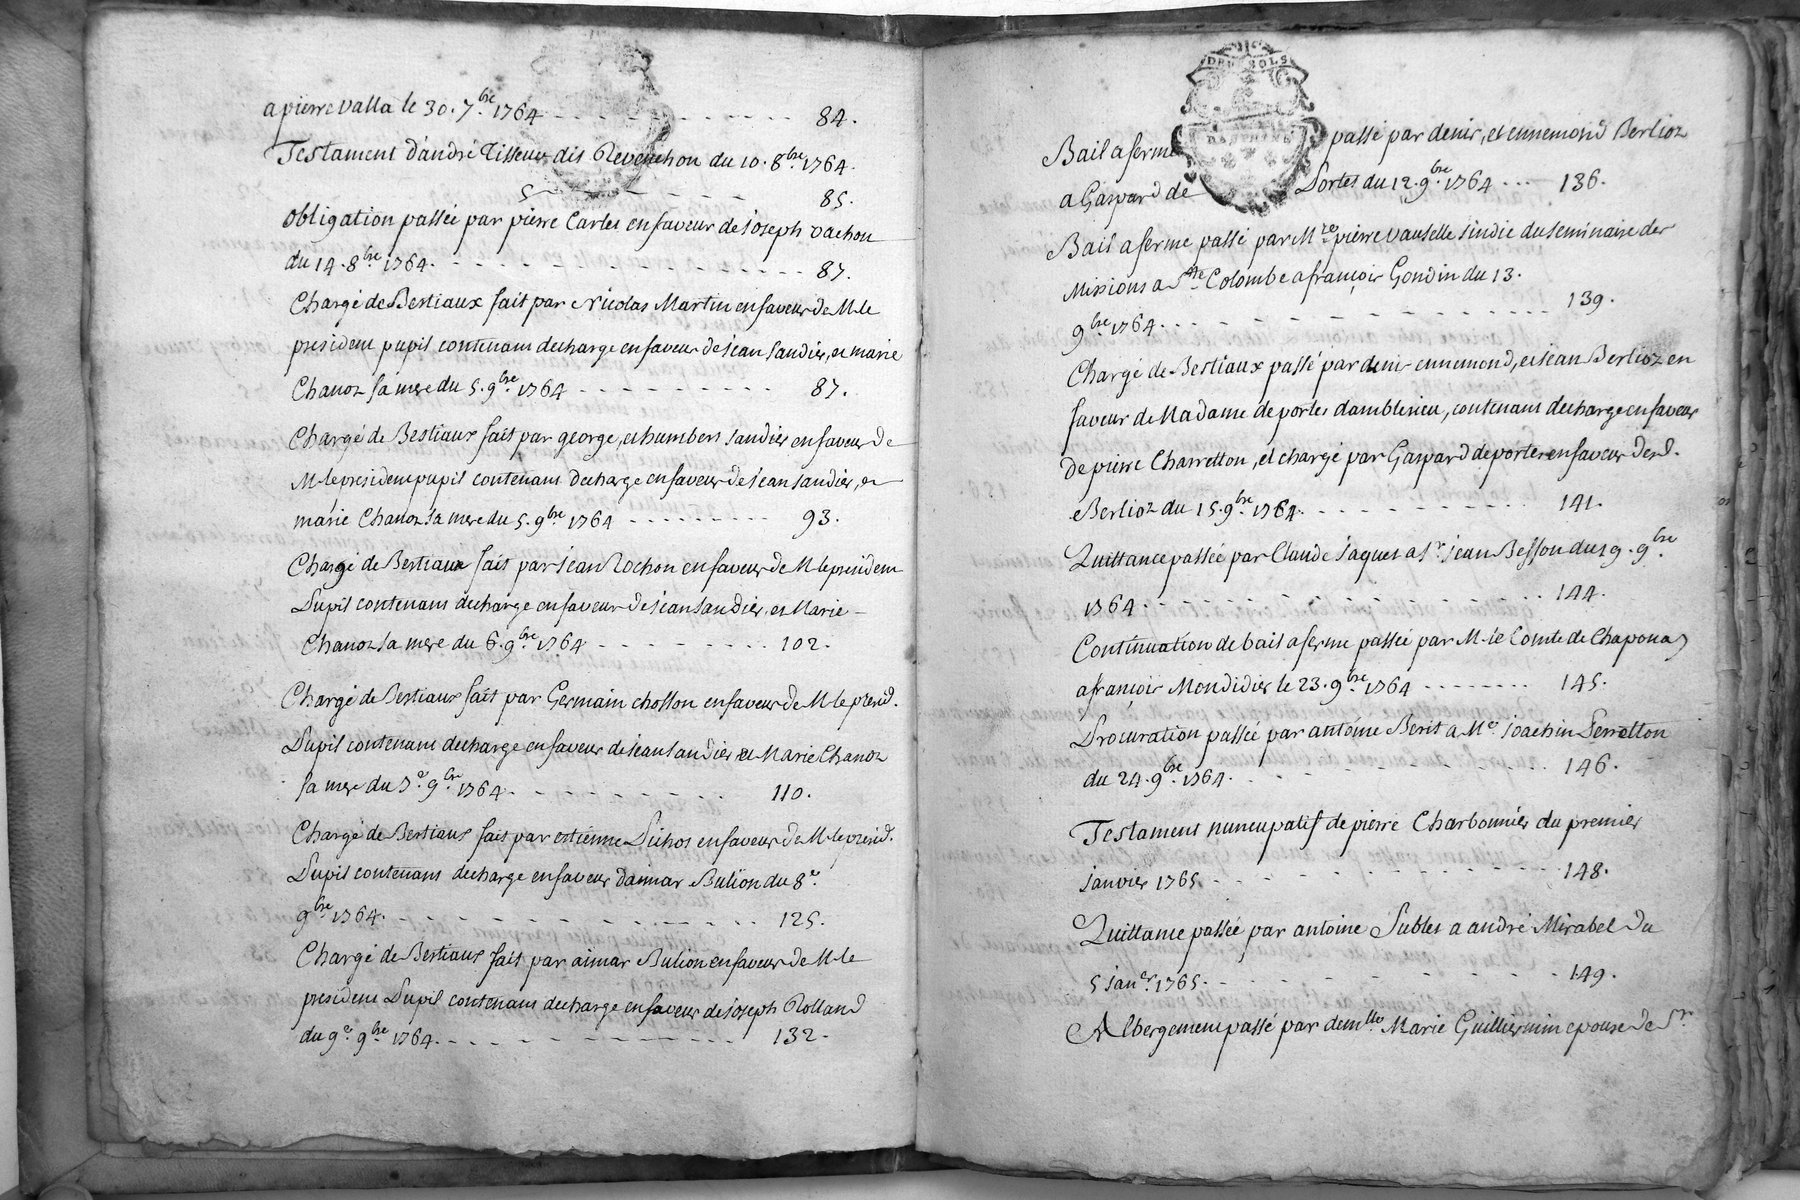 a pierre valla le 30. 7bre 1764 - - - - - - - - - - 84.
Testament d'andré Tisseur dit Revenchon du 10. 8bre 1764.
- - - - - - 85.
obligation passée par pierre Carles en faveur de joseph vachon
du 14. 8bre 1764. - - - - - - - - - - - - 87.
Chargé de Bestiaux fait par Nicolas Martin en faveur de M. le
president pupil contenant decharge en faveur de jean Sandier, et marie
Chanoz sa mere du 5. 9bre 1764 - - - - - - - - - 87.
Chargé de Bestiaux fait par george, et humbert sandier en faveur de
M. le president pupil contenant decharge en faveur de jean sandier, et
marie Chanoz sa mere du 5. 9bre 1764 - - - - - - - - - 93.
Chargé de Bestiaux fait par jean Rochon en faveur de M. le president
Pupil contenant decharge en faveur de jean sandier, et Marie -
Chanoz sa mere du 6. 9bre 1764 - - - - - - - - - 102.
Chargé de Bestiaux fait par Germain chosson en faveur de M. le presid.
Pupil contenant decharge en faveur de jean sandier et Marie Chanoz
sa mere du 7e 9bre 1764. - - - - - - - - 110.
Chargé de Bestiaux fait par estienne Pichos en faveur de M. le presid.
Pupil contenant decharge en faveur daimar Bulion du 8e
9bre 1764. - - - - - - - - - - - - 125.
Chargé de Bestiaux fait par aimar Bulion en faveur de M. le
president Pupil contenant decharge en faveur de joseph Rolland
du 9e 9bre 1764. - - - - - - - - - - 132.
DEUX SOLS
DAUPHINÉ
Bail a ferme passé par denis, et ennemond Berlioz
a Gaspard de Portes du 12. 9bre 1764 - - - 136.
Bail a ferme passé par Mre pierre vauselle sindic du seminaire des
Missions a Ste Colombe a françois Gondin du 13.
9bre 1764. - - - - - - - - - - - - 139.
Chargé de Bestiaux passé par denis ennemond, et jean Berlioz en
faveur de Madame de portes damblerieu, contenant decharge en faveur
de pierre Charretton, et chargé par Gaspard de portes en faveur desd.
Berlioz du 15. 9bre 1764. - - - - - - - - - 141.
Quittance passée par Claude jaques a Sr jean Besson du 19. 9bre
1764. - - - - - - - - - - - - - 144.
Continuation de bail a ferme passée par M. le Comte de Chaponay
a françois Mondidier le 23. 9bre 1764 - - - - - - - - 145.
Procuration passée par antoine Berit a Me joachin Perrotton
du 24. 9bre 1764. - - - - - - - - - - 146.
Testament nuncupatif de pierre Charbonnier du premier
janvier 1765. - - - - - - - - - - 148.
Quittance passée par antoine Sublet a andré Mirabel du
5 janer 1765. - - - - - - - - - - 149.
Albergement passé par demlle Marie Guillermin epouse de Sr